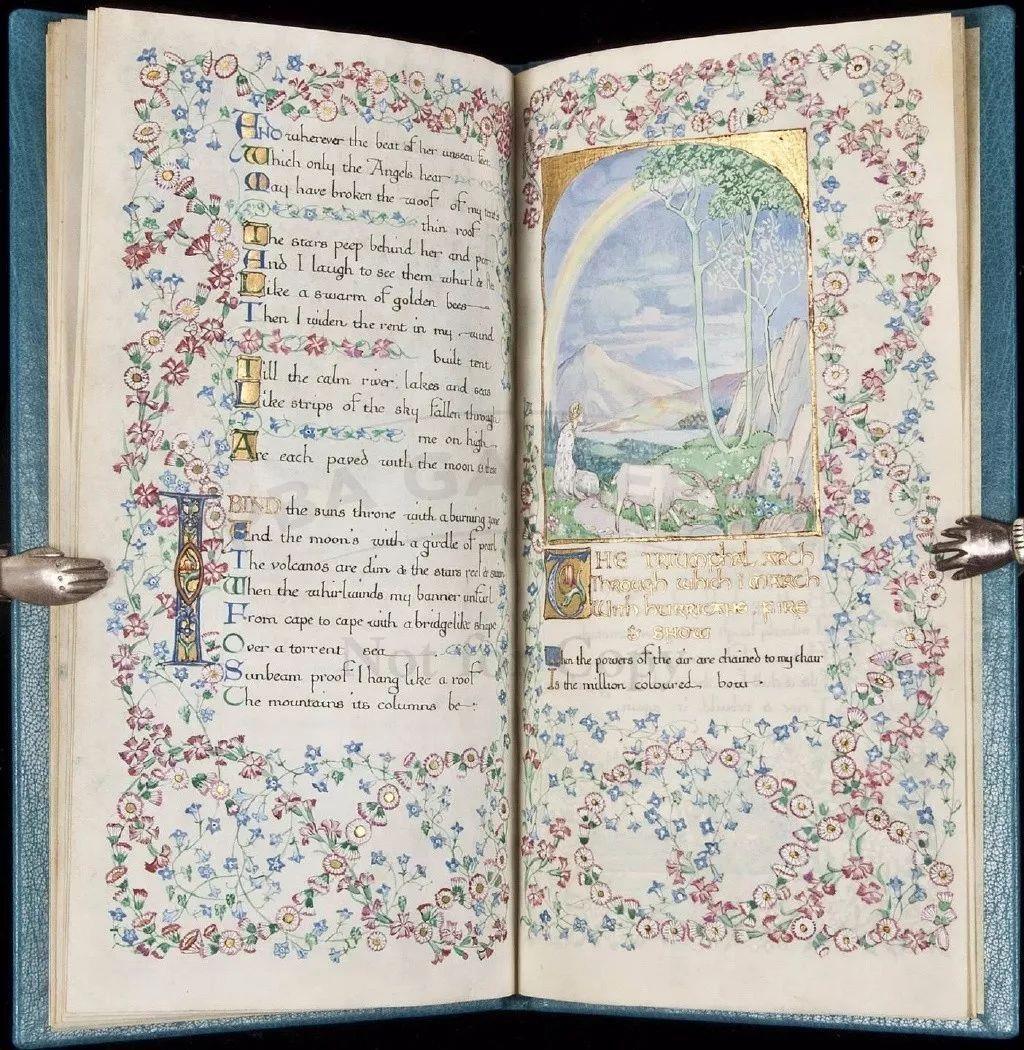 AND wherever the beat of her unseen feet
Which only the Angels hear
May have broken the woof of my tent's
thin roof
The stars peep behind her and peer
And I laugh to see them whirl & flee
Like a swarm of golden bees
Then I widen the rent in my wind
built tent
Till the calm river, lakes and seas
Like strips of the sky fallen through
me on high
Are each paved with the moon & these
I BIND the sun's throne with a burning zone
And the moon's with a girdle of pearl
The volcanos are dim & the stars reel & swim
When the whirlwinds my banner unfurl
From cape to cape with a bridgelike shape
Over a torrent sea
Sunbeam proof I hang like a roof
The mountains its columns be
THE TRIUMPHAL ARCH
Through which I MARCH
With hurricane, FIRE
& SNOW
When the powers of the air are chained to my chair
Is the million coloured bow